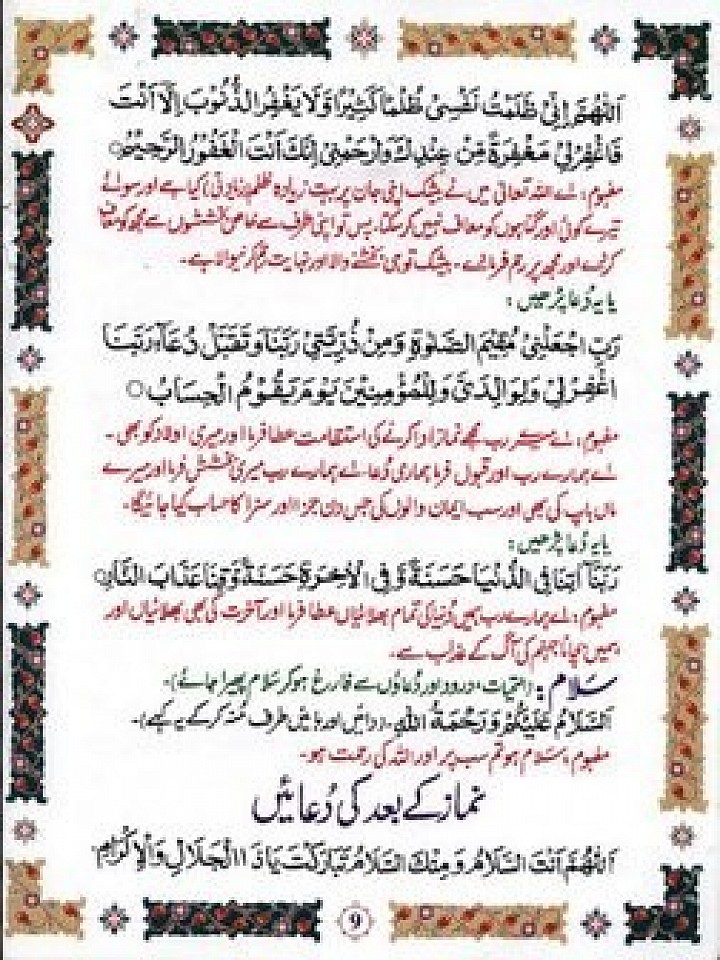 اَللّٰهُمَّ اِنِّیْ ظَلَمْتُ نَفْسِیْ ظُلْمًا كَثِیْرًا وَّلَا یَغْفِرُ الذُّنُوْبَ اِلَّا اَنْتَ
فَاغْفِرْلِیْ مَغْفِرَةً مِّنْ عِنْدِكَ وَارْحَمْنِیْ اِنَّكَ اَنْتَ الْغَفُوْرُ الرَّحِیْمُ○
مفہوم: اے اللہ تعالیٰ میں نے بیشک اپنی جان پر بہت زیادہ ظلم (زیادتی) کیا ہے اور سوائے
تیرے کوئی اور گناہوں کو معاف نہیں کر سکتا، پس تو اپنی طرف سے خاص بخششوں سے مجھ کو معاف
کر دے اور مجھ پر رحم فرمادے۔ بیشک تو ہی بخشنے والا اور نہایت رحم کرنیوالا ہے۔
یا یہ دُعا پڑھیں:
رَبِّ اجْعَلْنِیْ مُقِیْمَ الصَّلٰوةِ وَمِنْ ذُرِّیَّتِیْ رَبَّنَا وَتَقَبَّلْ دُعَآءِ رَبَّنَا
اغْفِرْلِیْ وَلِوَالِدَیَّ وَلِلْمُؤْمِنِیْنَ یَوْمَ یَقُوْمُ الْحِسَابُ○
مفہوم: اے میرے رب مجھے نماز ادا کرنے کی استقامت عطا فرما اور میری اولاد کو بھی۔
اے ہمارے رب اور قبول فرما ہماری دُعا اے ہمارے رب میری بخشش فرما اور میرے
ماں باپ کی بھی اور سب ایمان والوں کی جس دن جزا اور سزا کا حساب کیا جائیگا۔
یا یہ دُعا پڑھیں:
رَبَّنَا اٰتِنَا فِی الدُّنْیَا حَسَنَةً وَّفِی الْاٰخِرَةِ حَسَنَةً وَّقِنَا عَذَابَ النَّارِ○
مفہوم: اے ہمارے رب ہمیں دُنیا کی تمام بھلائیاں عطا فرما اور آخرت کی بھی بھلائیاں اور
ہمیں بچانا جہنم کی آگ کے عذاب سے۔
سَلام: (التحیات، درود اور دُعاؤں سے فارغ ہو کر سَلام پھیرا جائے)۔
اَلسَّلَامُ عَلَیْكُمْ وَرَحْمَةُ اللهِ۔ (دائیں اور بائیں طرف مُنہ کر کے یہ کہے)۔
مفہوم: سَلام ہو تم سب پر اور اللہ کی رحمت ہو۔
نماز کے بعد کی دُعائیں
اَللّٰهُمَّ اَنْتَ السَّلَامُ وَمِنْكَ السَّلَامُ تَبَارَكْتَ یَا ذَا الْجَلَالِ وَالْاِكْرَامِ
9